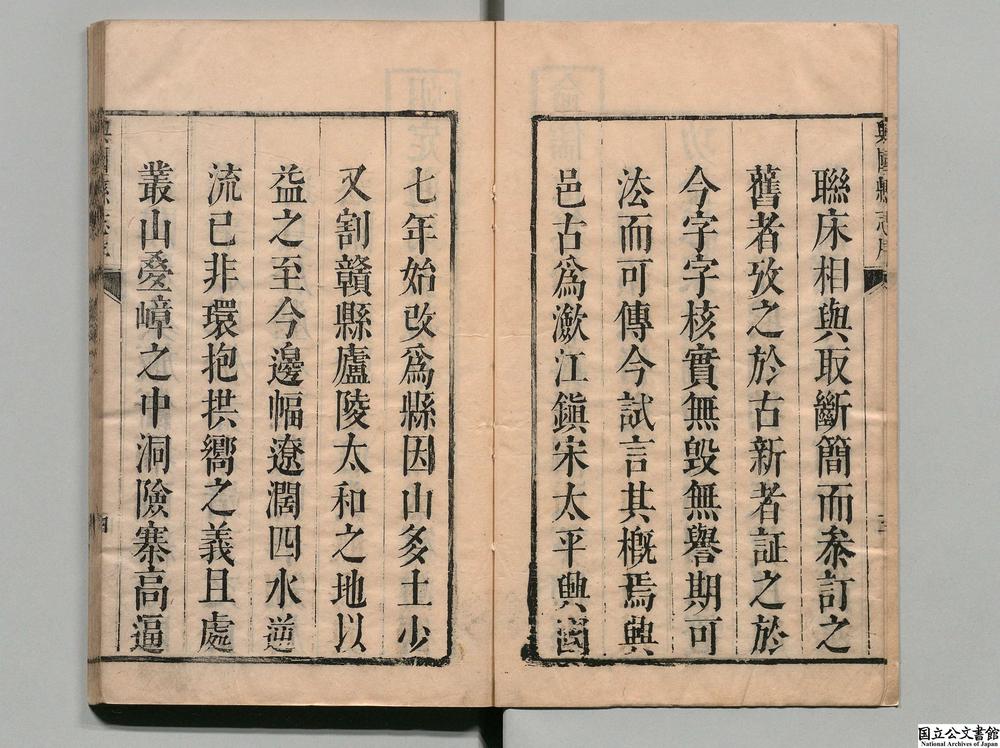 聯床相與取斷簡而叅訂之
舊者攷之於古新者証之於
今字字核實無毀無譽期可
法而可傳今試言其概焉興
邑古為潋江鎮宋太平興國
七年始改為縣因山多土少
又割贛縣廬陵太和之地以
益之至今邊幅遼濶四水逆
流已非環抱拱嚮之義且處
叢山疊嶂之中洞險寨高逼
興國縣志序
三
興國縣志序
四
国立公文書館
National Archives of Japan